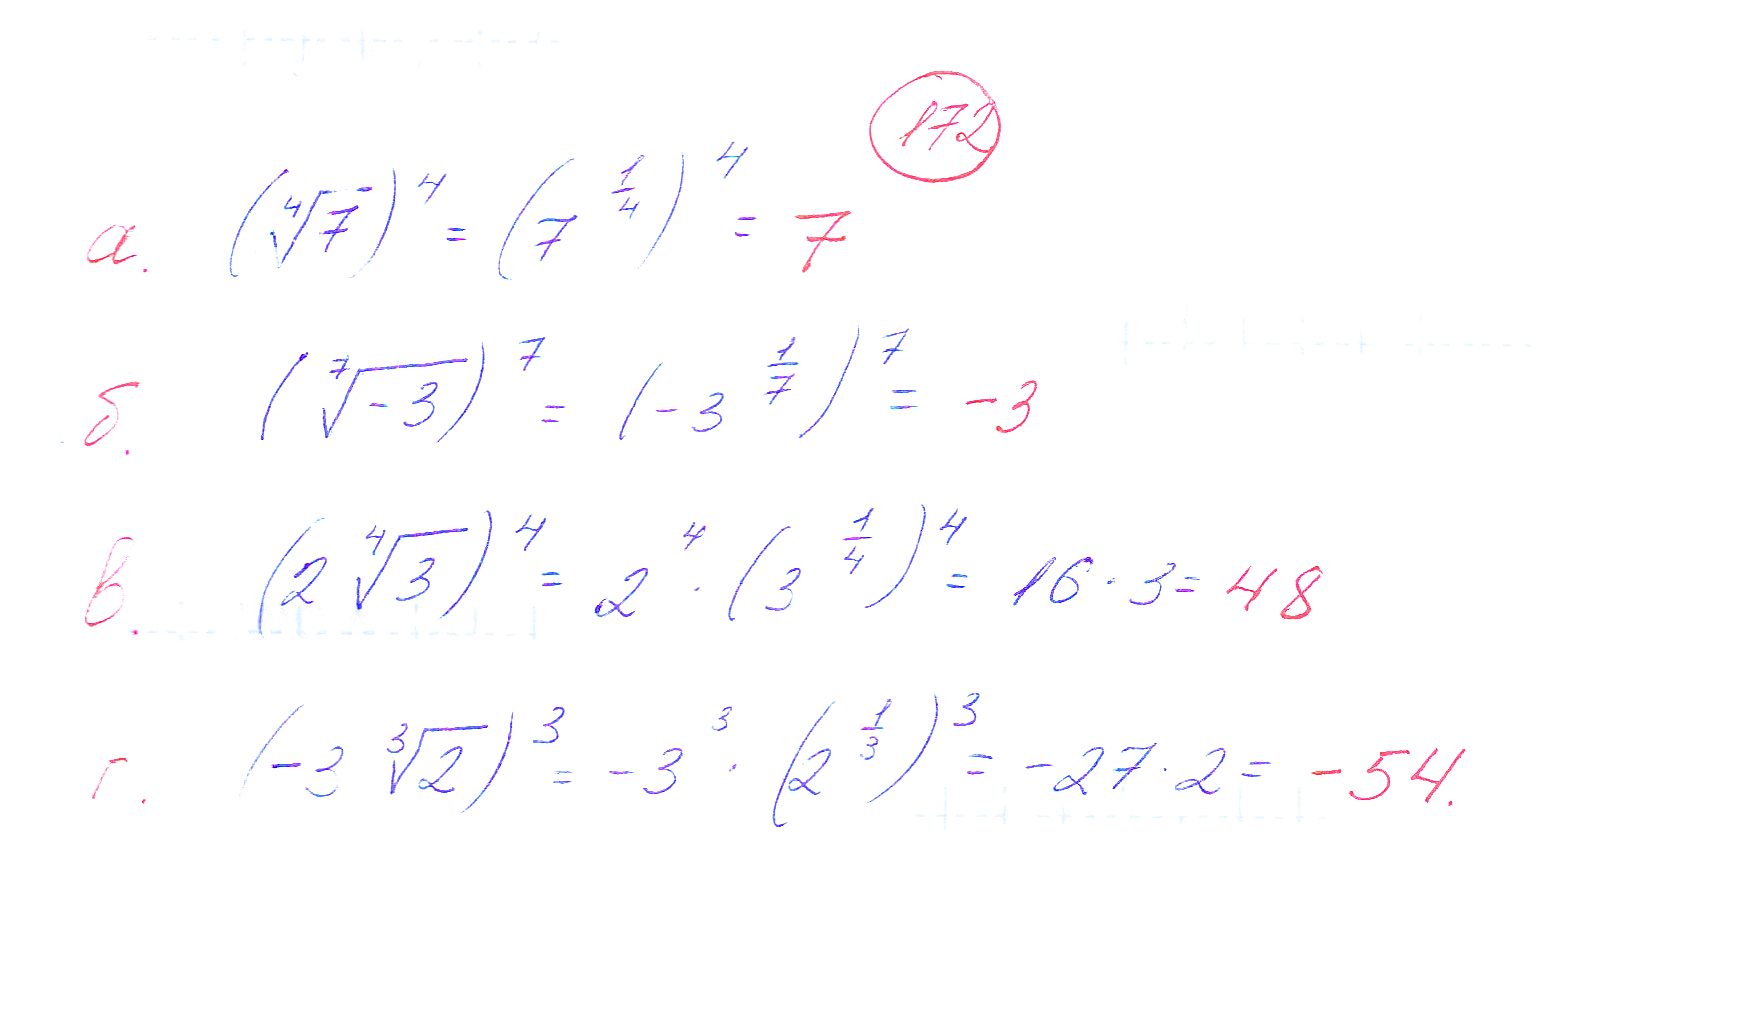 172
а. (⁴√7)⁴ = (7^(1/4))⁴ = 7
б. (⁷√-3)⁷ = (-3^(1/7))⁷ = -3
в. (2 ⁴√3)⁴ = 2⁴ · (3^(1/4))⁴ = 16 · 3 = 48
г. (-3 ³√2)³ = -3³ · (2^(1/3))³ = -27 · 2 = -54.